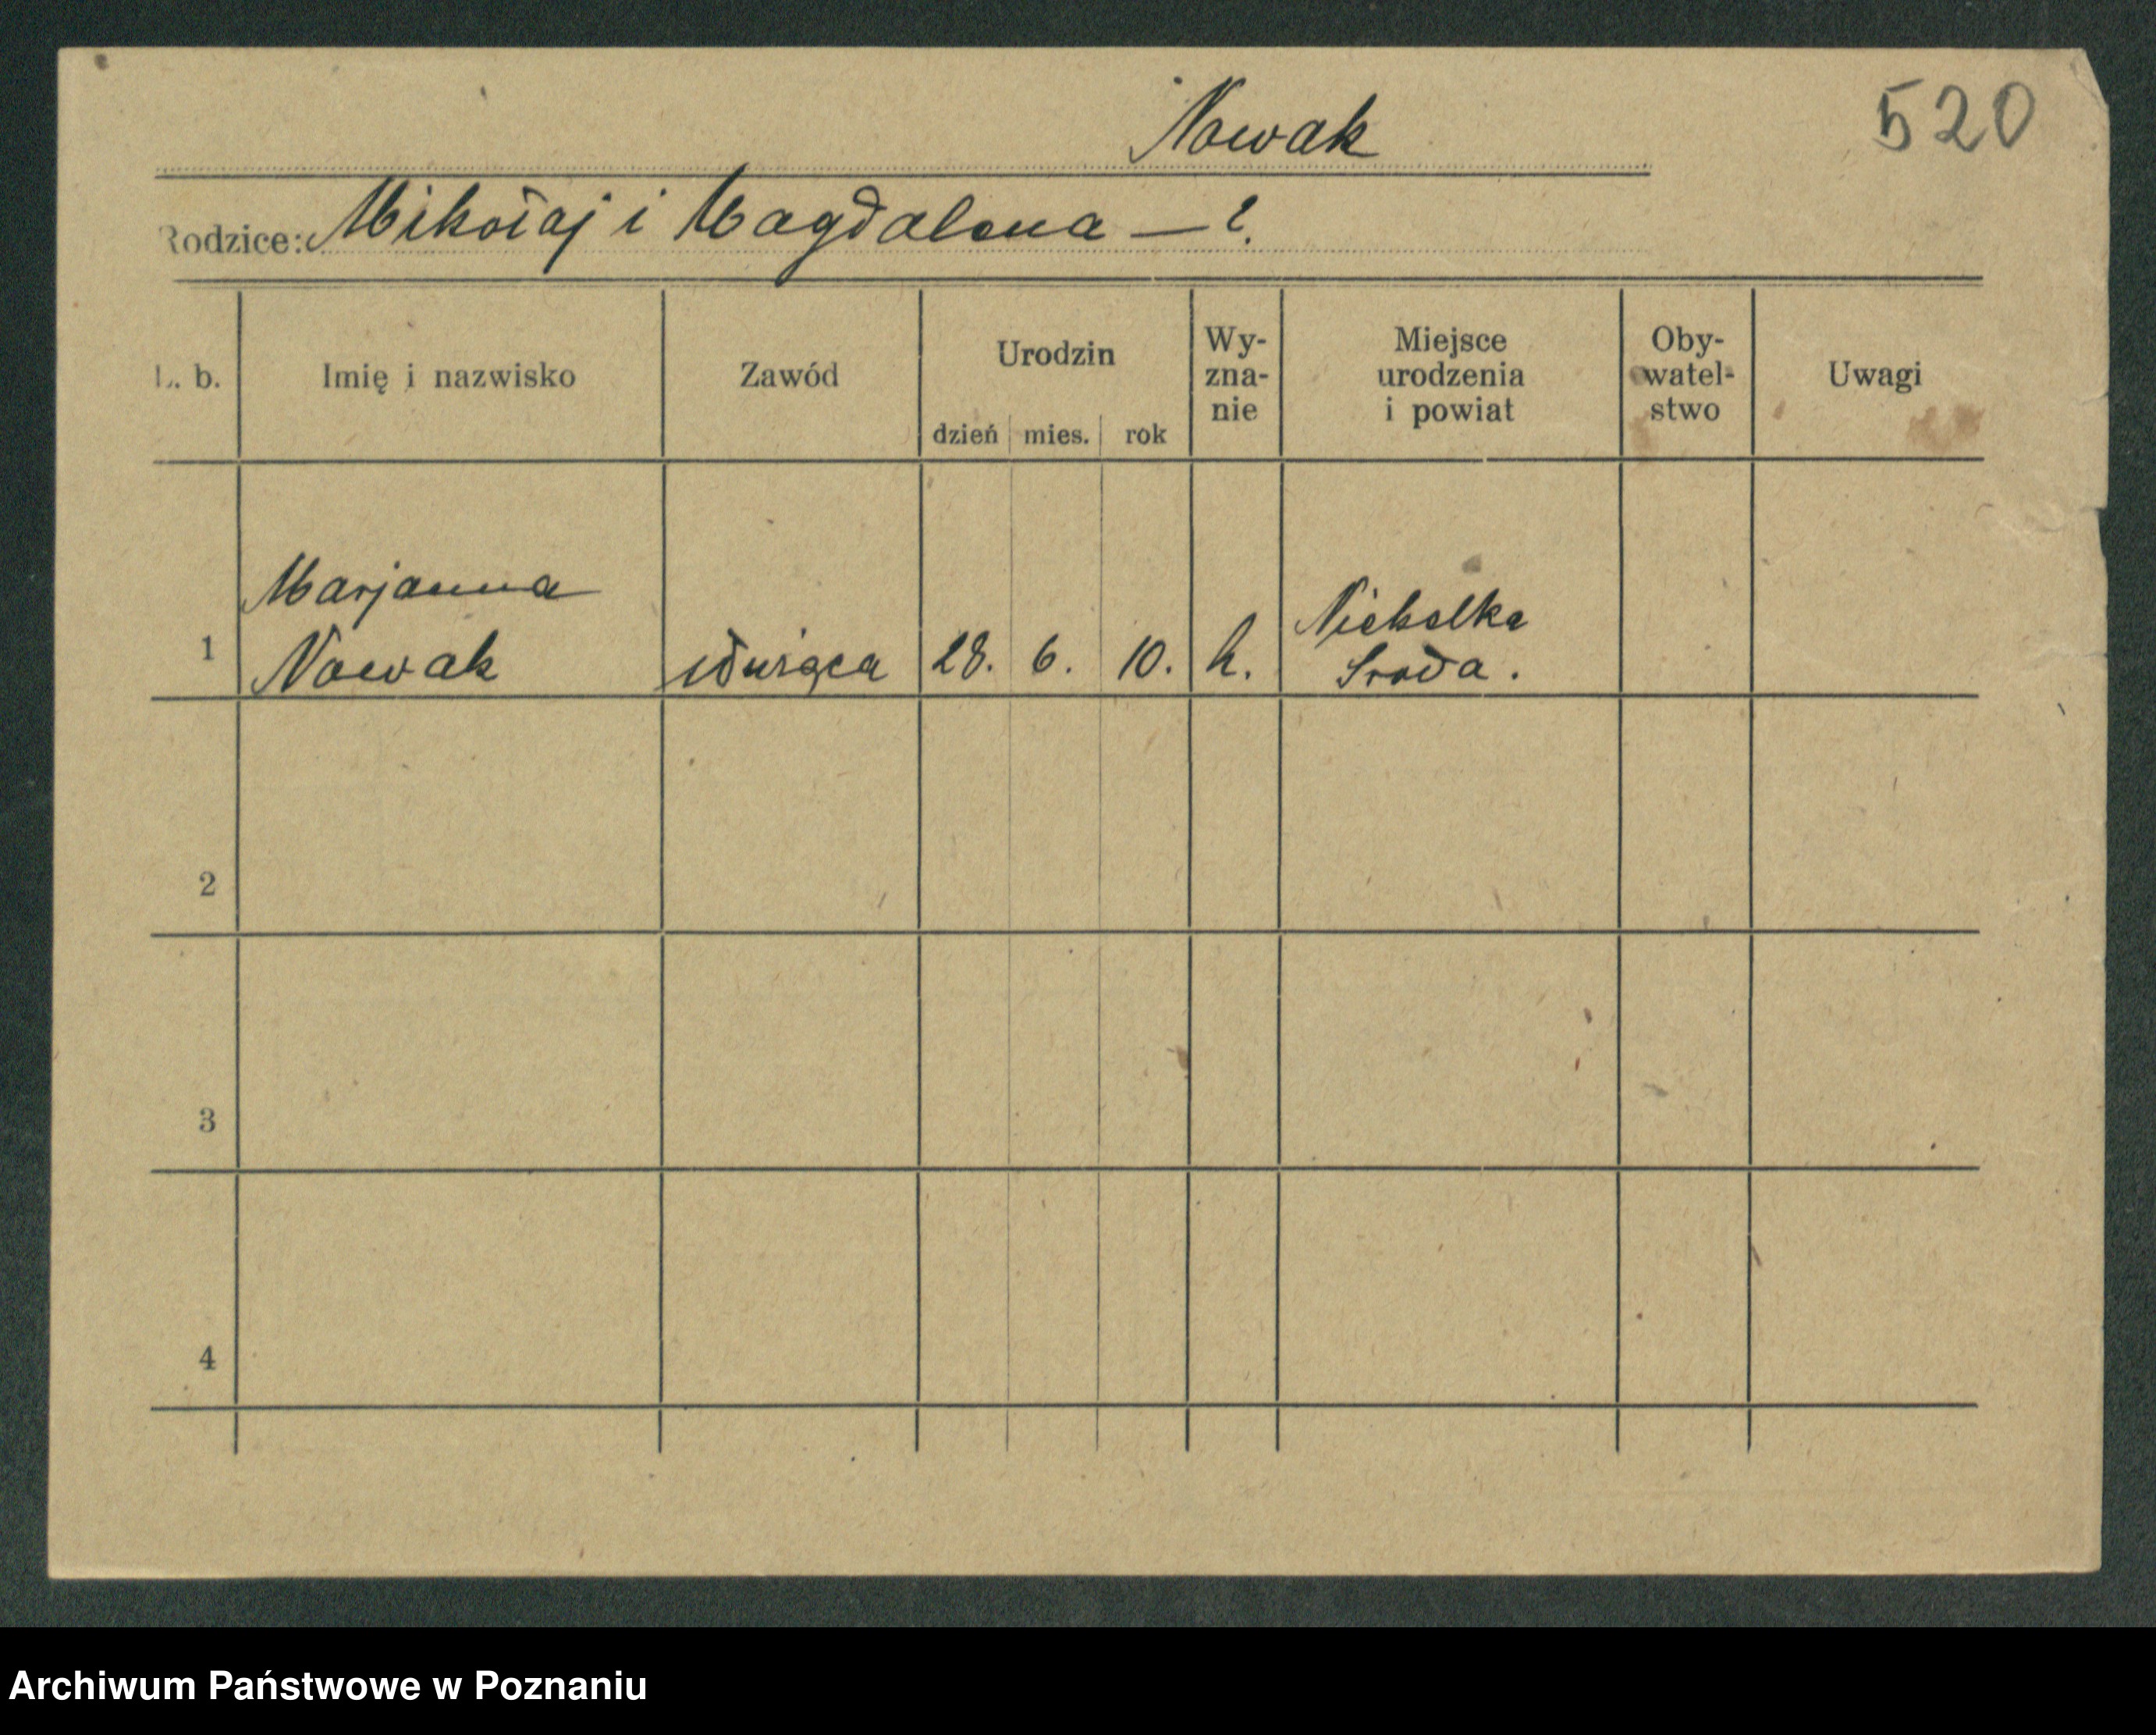 Nowak
520
Rodzice: Mikołaj i Magdalena — ?
L. b. Imię i nazwisko Zawód Urodzin dzień mies. rok Wy-zna-nie Miejsce urodzenia i powiat Oby-watel-stwo Uwagi
Marjanna
1 Nowak służąca 28. 6. 10. k. Niekelka
Sroda.
2
3
4
Archiwum Państwowe w Poznaniu